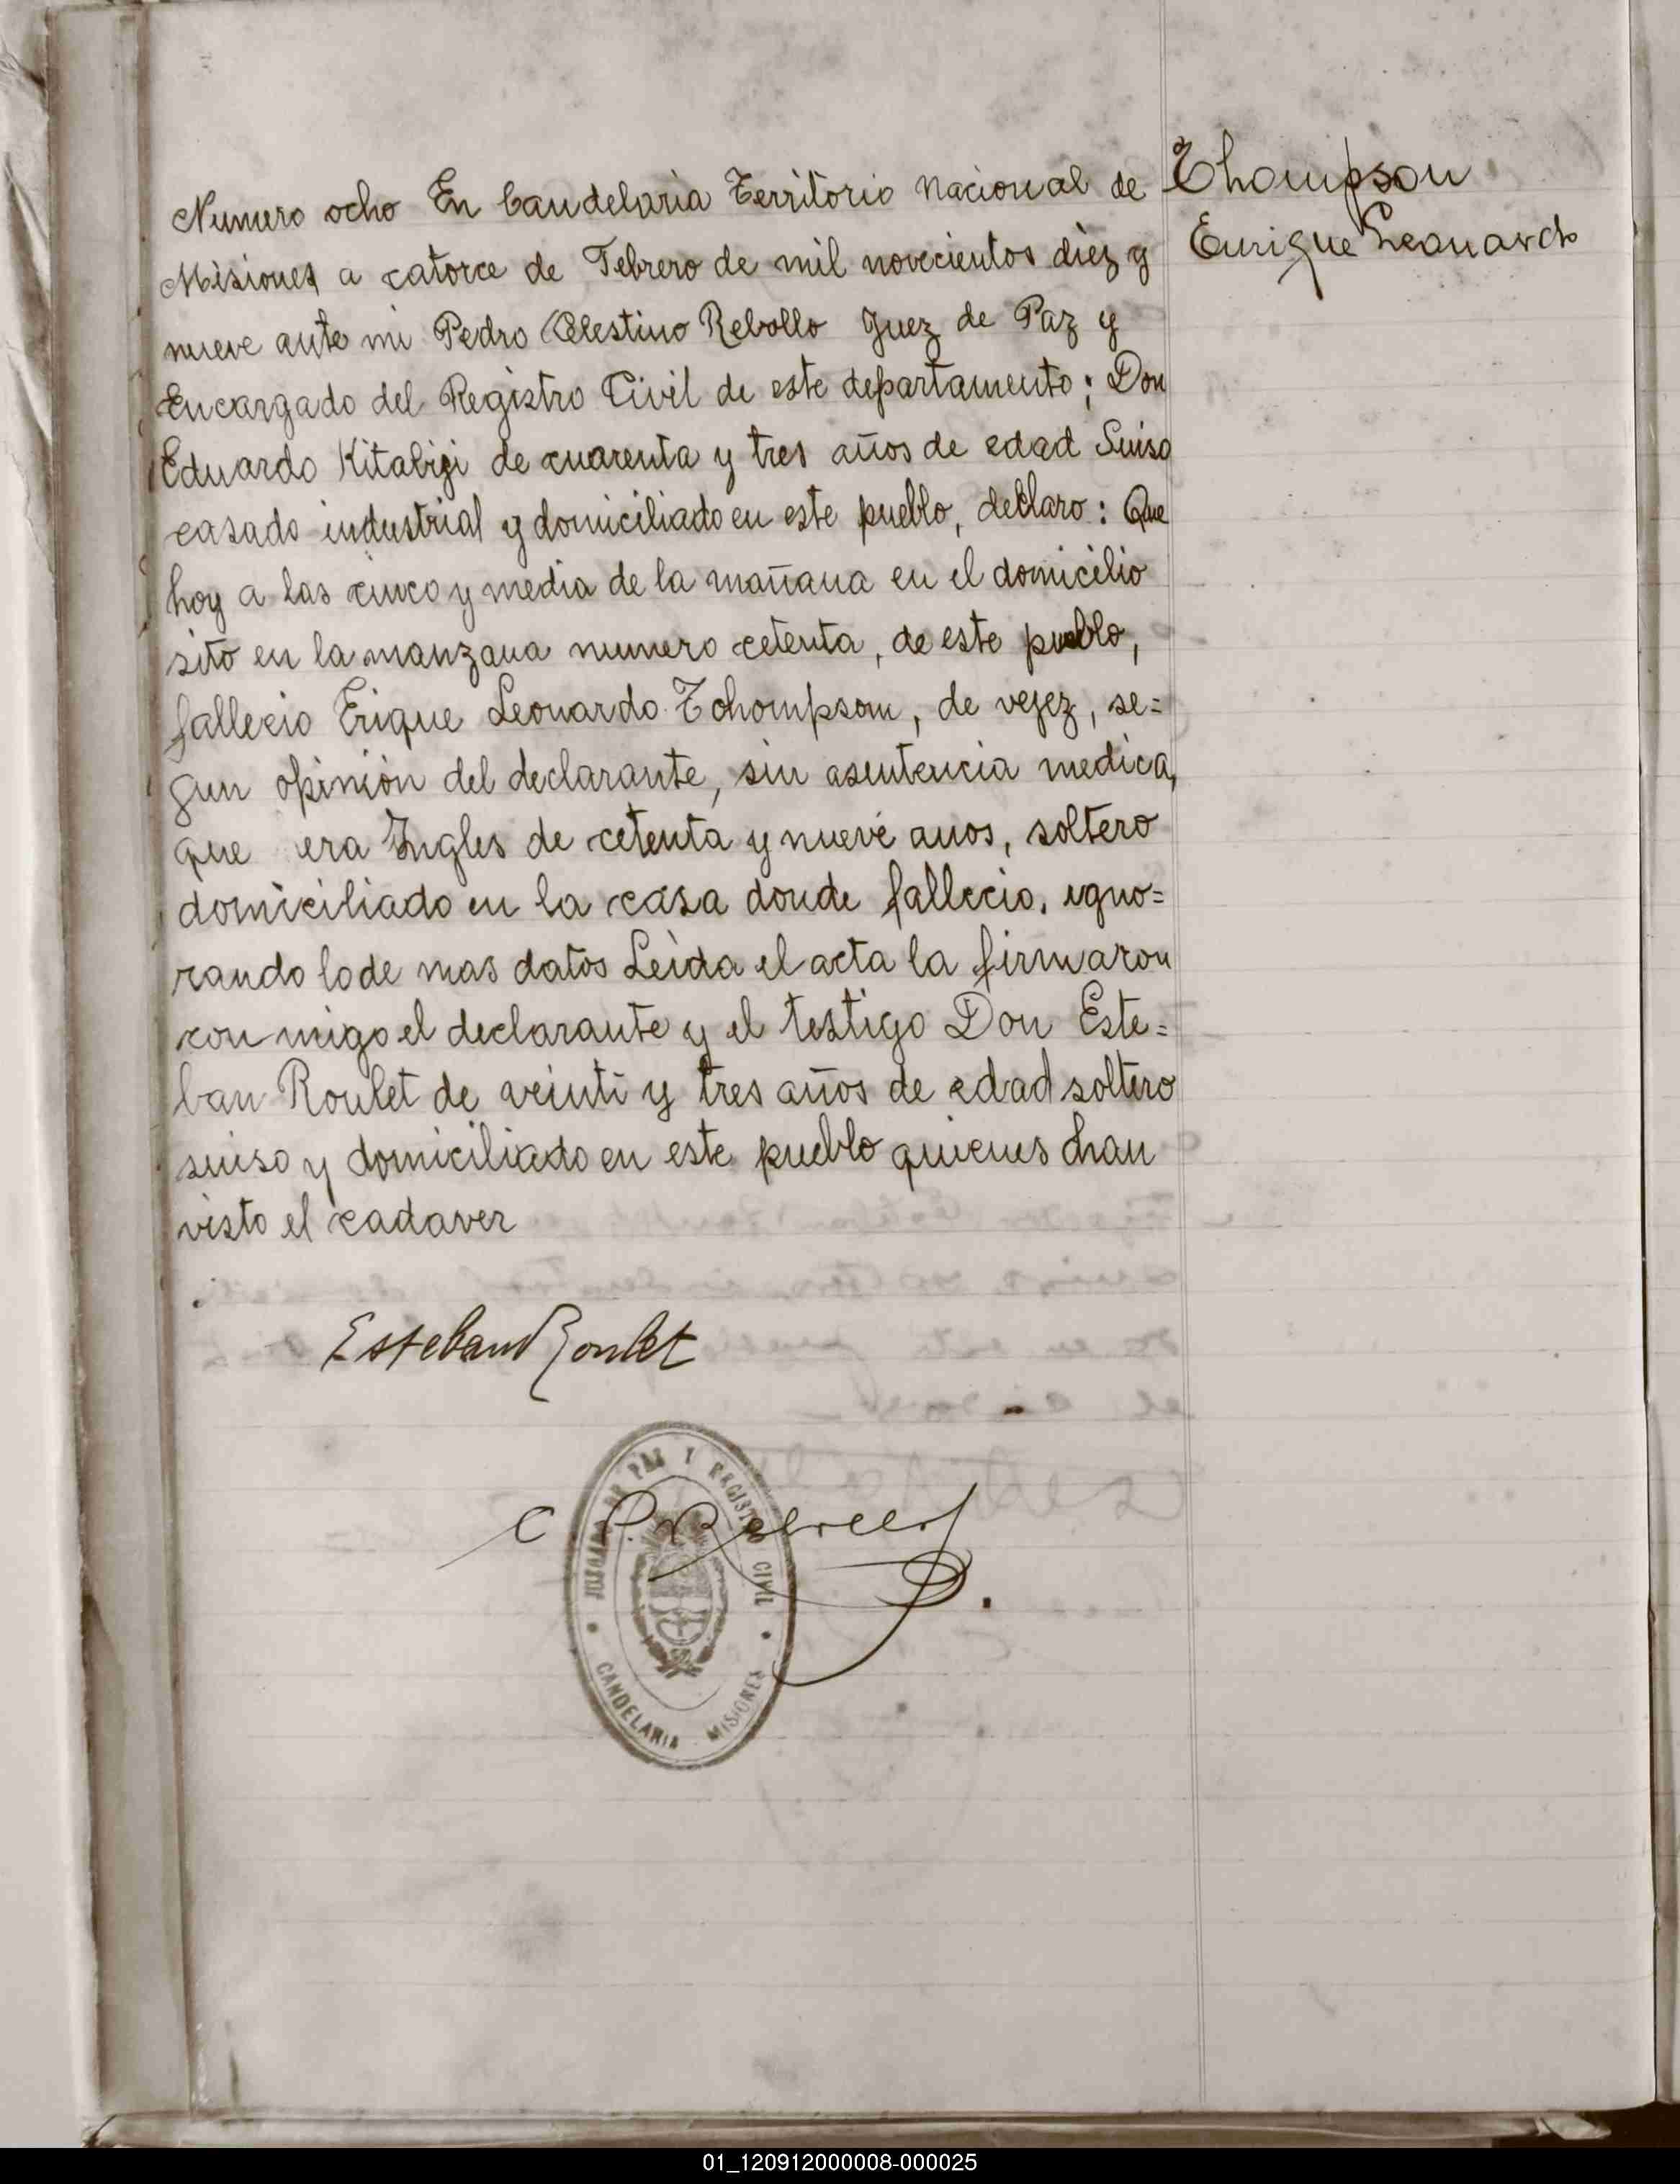 Thompson
Enrique Leonardo
Numero ocho En Candelaria Territorio Nacional de
Misiones a catorce de Febrero de mil novecientos diez y
nueve ante mi Pedro Celestino Rebollo Juez de Paz y
Encargado del Registro Civil de este departamento; Don
Eduardo Kitabigi de cuarenta y tres años de edad Suiso
casado industrial y domiciliado en este pueblo, declaro: Que
hoy a las cinco y media de la mañana en el domicilio
sito en la manzana numero cetenta, de este pueblo,
fallecio Erique Leonardo Tchompsom, de vejez, se=
gun opinión del declarante, sin asentencia medica,
que era Ingles de cetenta y nueve anos, soltero
domiciliado en la casa donde fallecio, igno=
rando lo de mas datos Leìda el acta la firmaron
con migo el declarante y el testigo Don Este=
ban Roulet de veinti y tres años de edad soltero
suiso y domiciliado en este pueblo quienes han
visto el cadaver
Esteban Roulet
C P. Rebollo
JUZGADO DE PAZ Y REGISTRO CIVIL
CANDELARIA MISIONES
01_120912000008-000025